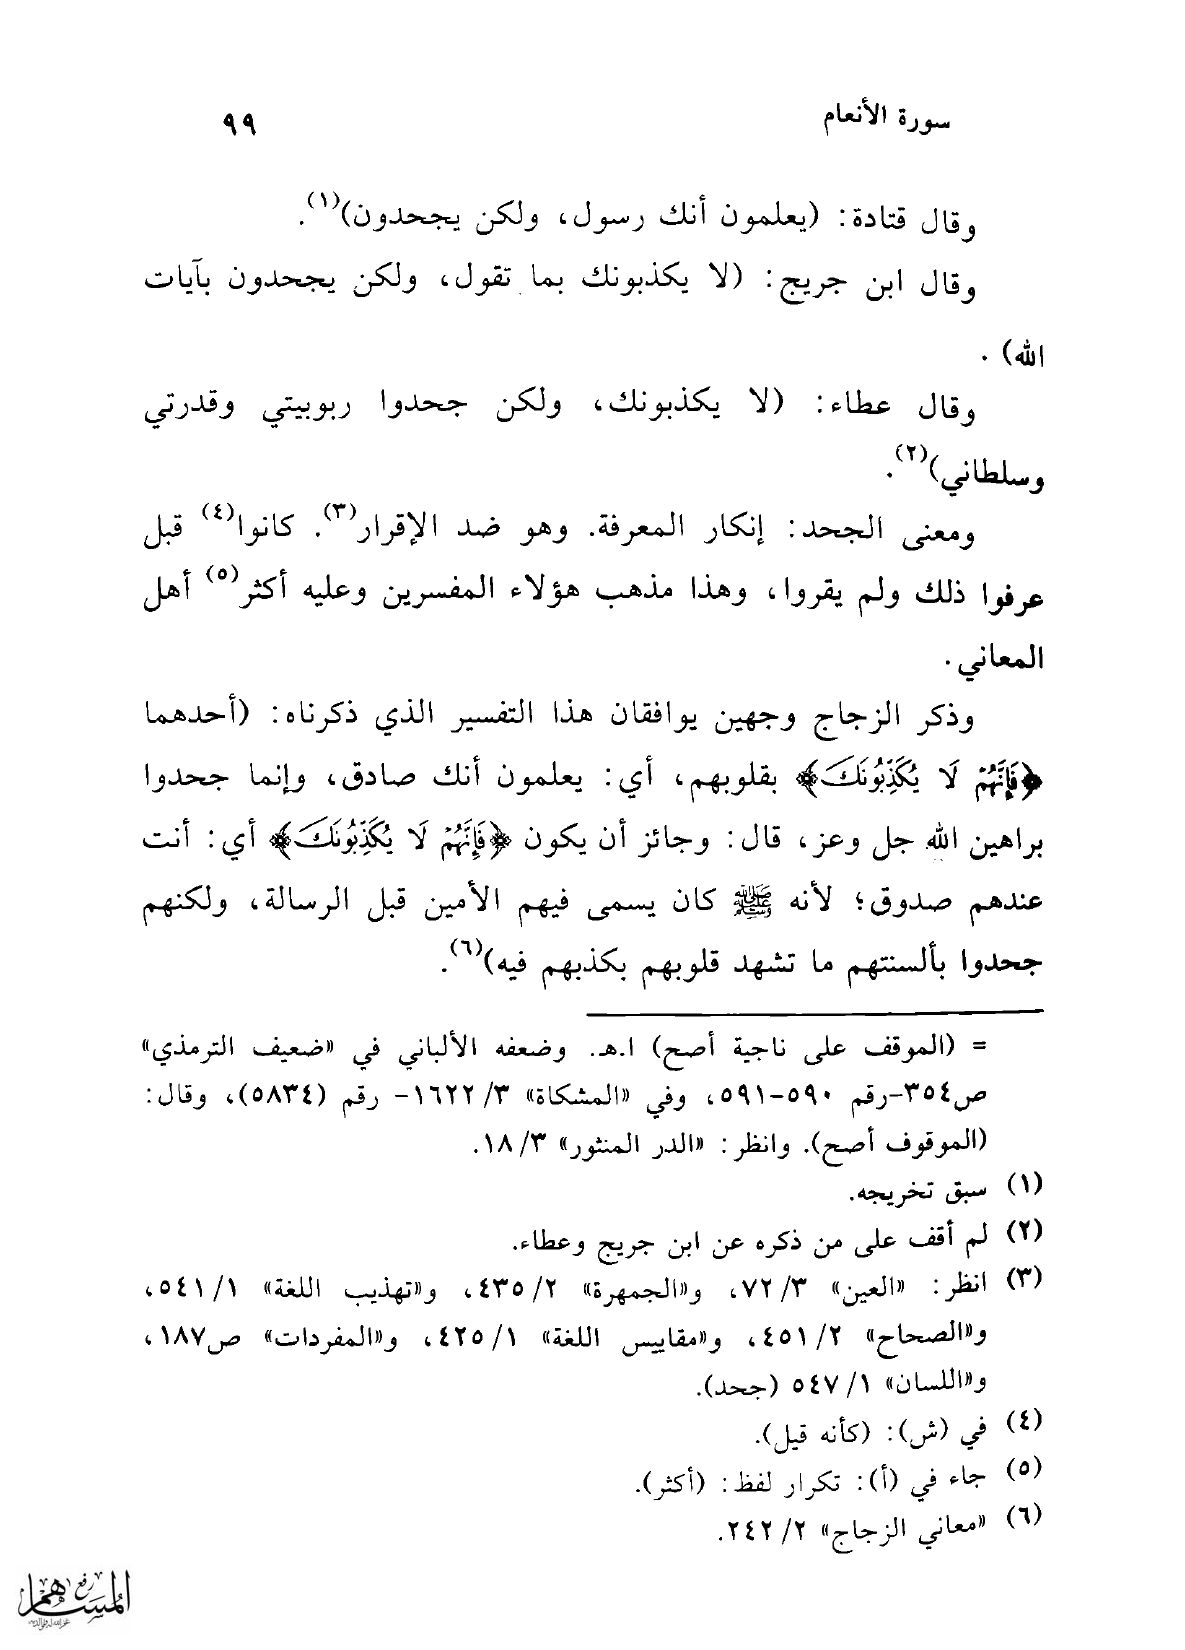 سورة الأنعام ٩٩
وقال قتادة: (يعلمون أنك رسول، ولكن يجحدون)(١).
وقال ابن جريج: (لا يكذبونك بما تقول، ولكن يجحدون بآيات
الله).
وقال عطاء: (لا يكذبونك، ولكن جحدوا ربوبيتي وقدرتي
وسلطاني)(٢).
ومعنى الجحد: إنكار المعرفة. وهو ضد الإقرار(٣). كانوا(٤) قبل
عرفوا ذلك ولم يقروا، وهذا مذهب هؤلاء المفسرين وعليه أكثر(٥) أهل
المعاني.
وذكر الزجاج وجهين يوافقان هذا التفسير الذي ذكرناه: (أحدهما
﴿فَإِنَّهُمْ لَا يُكَذِّبُونَكَ﴾ بقلوبهم، أي: يعلمون أنك صادق، وإنما جحدوا
براهين الله جل وعز، قال: وجائز أن يكون ﴿فَإِنَّهُمْ لَا يُكَذِّبُونَكَ﴾ أي: أنت
عندهم صدوق؛ لأنه ﷺ كان يسمى فيهم الأمين قبل الرسالة، ولكنهم
جحدوا بألسنتهم ما تشهد قلوبهم بكذبهم فيه)(٦).
= (الموقف على ناجية أصح) ا.هـ. وضعفه الألباني في «ضعيف الترمذي»
ص٣٥٤-رقم ٥٩٠-٥٩١، وفي «المشكاة» ٣/ ١٦٢٢- رقم (٥٨٣٤)، وقال:
(الموقوف أصح). وانظر: «الدر المنثور» ٣/ ١٨.
(١) سبق تخريجه.
(٢) لم أقف على من ذكره عن ابن جريج وعطاء.
(٣) انظر: «العين» ٣/ ٧٢، و«الجمهرة» ٢/ ٤٣٥، و«تهذيب اللغة» ١/ ٥٤١،
و«الصحاح» ٢/ ٤٥١، و«مقاييس اللغة» ١/ ٤٢٥، و«المفردات» ص١٨٧،
و«اللسان» ١/ ٥٤٧ (جحد).
(٤) في (ش): (كأنه قيل).
(٥) جاء في (أ): تكرار لفظ: (أكثر).
(٦) «معاني الزجاج» ٢/ ٢٤٢.